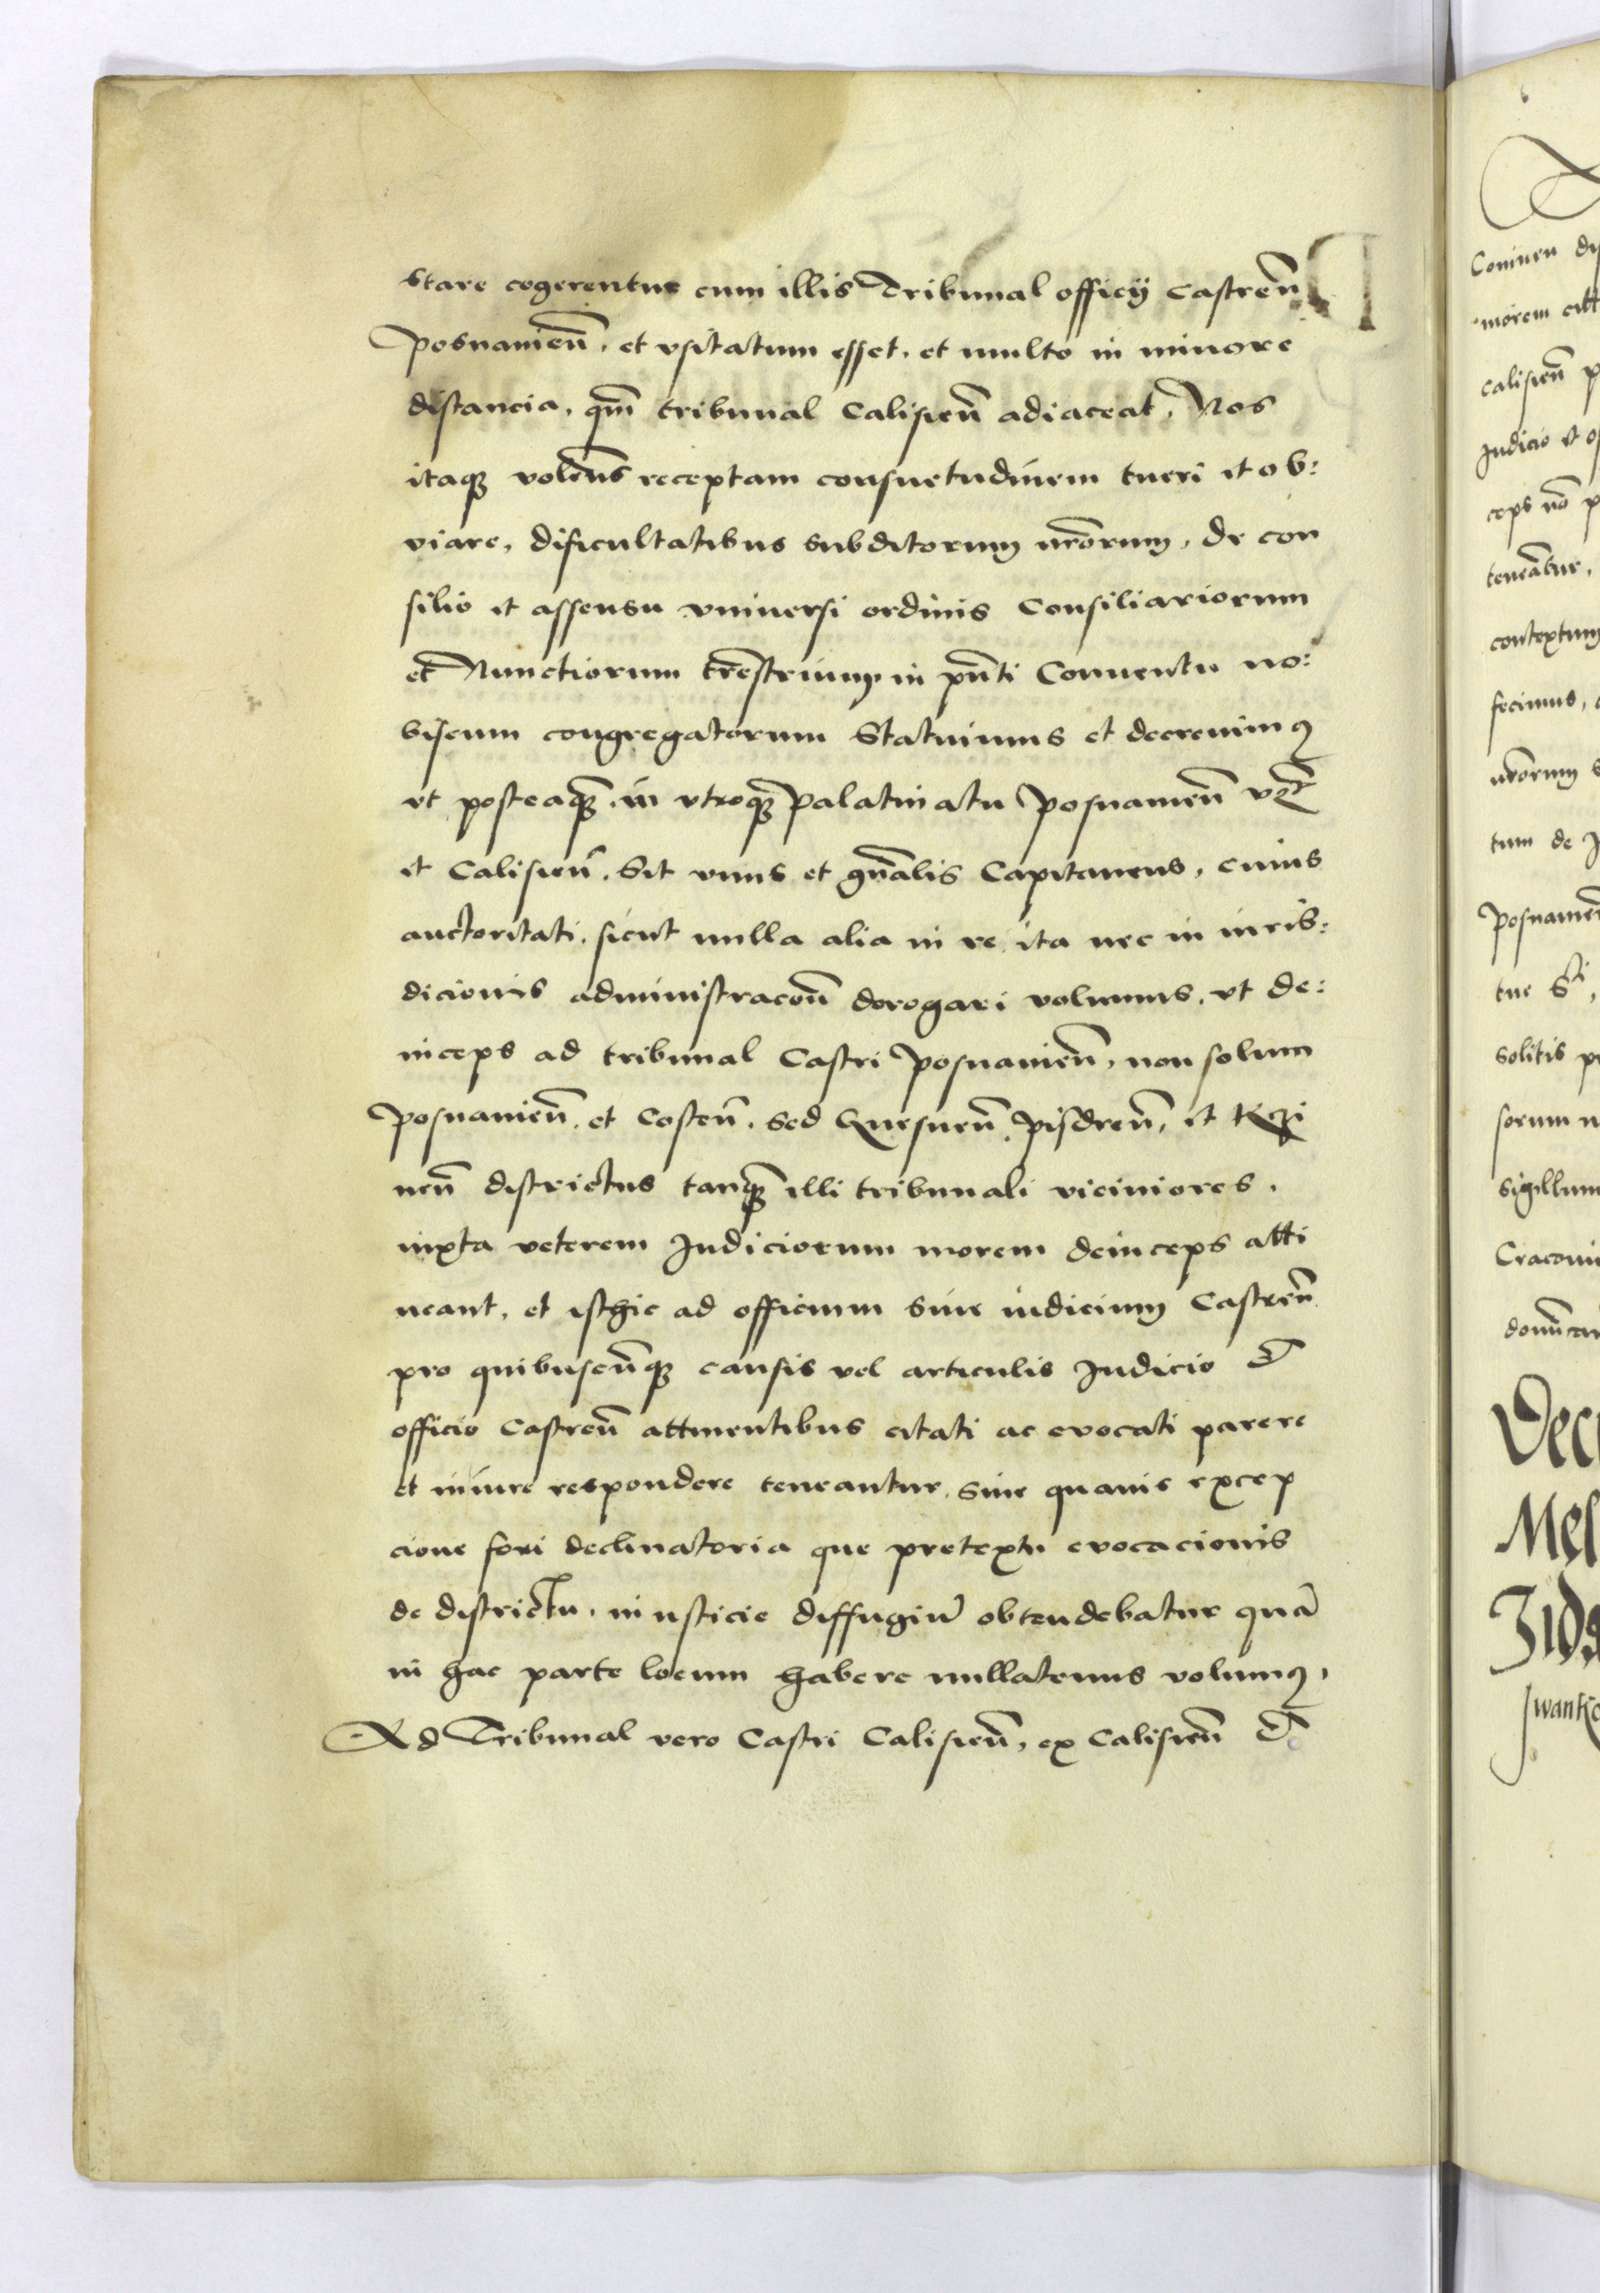 stare cogerentur cum illis Tribunal officij Castren̄
Posnanien̄, et vsitatum esset, et multo in minore
distancia, qm̄ tribunal Calisien̄ adiaceat, Nos
itaqȝ volen̄s receptam consuetudinem tueri et ob:
viare, dificultatibus subditorum nr̄orum, de con
silio et assensu vniuersi ordinis Consiliariorum
et Nunctiorum tr̄estrium, in pn̄ti Conuentu no:
biscum congregatorum Statuimus et decreuimꝰ
vt posteaqȝ in vtroqȝ Palatinatu Posnanien̄
et Calisien̄, Sit vnus et gn̄alis Capitaneus, cuius
auctoritati, sicut nulla alia in re ita nec in iuris:
dicionis administracōn̄ dorogari volumus, vt de:
inceps ad tribunal Castri Posnanien̄, non solum
Posnanien̄, et Costen̄, sed Gnesnen̄, Pisdren̄, et Kczi
nen̄ districtus tanqȝ illi tribunali viciniores,
iuxta veterem Judiciorum morem deinceps atti
neant, et isthic ad officium siue iudicium Castren̄
pro quibuscun̄qȝ causis vel articulis Judicio &
officio Castren̄ attinentibus citati ac evocati parere
et in iure respondere teneantur, sine quauis excep
cione fori declinatoria que pretextu evocacionis
de districtu, in iusticie diffugiū obtendebatur quā
in hac parte locum habere nullatenus volumꝰ,
Ad Tribunal vero Castri Calisien̄, ex Calisien̄ &
Coninen
calisien̄
Judicio et
ceps nō
teneātur,
contextum
fecimus,
nr̄orum
tum de
Posnanien
solitis
sorum
sigillum
Cracoui